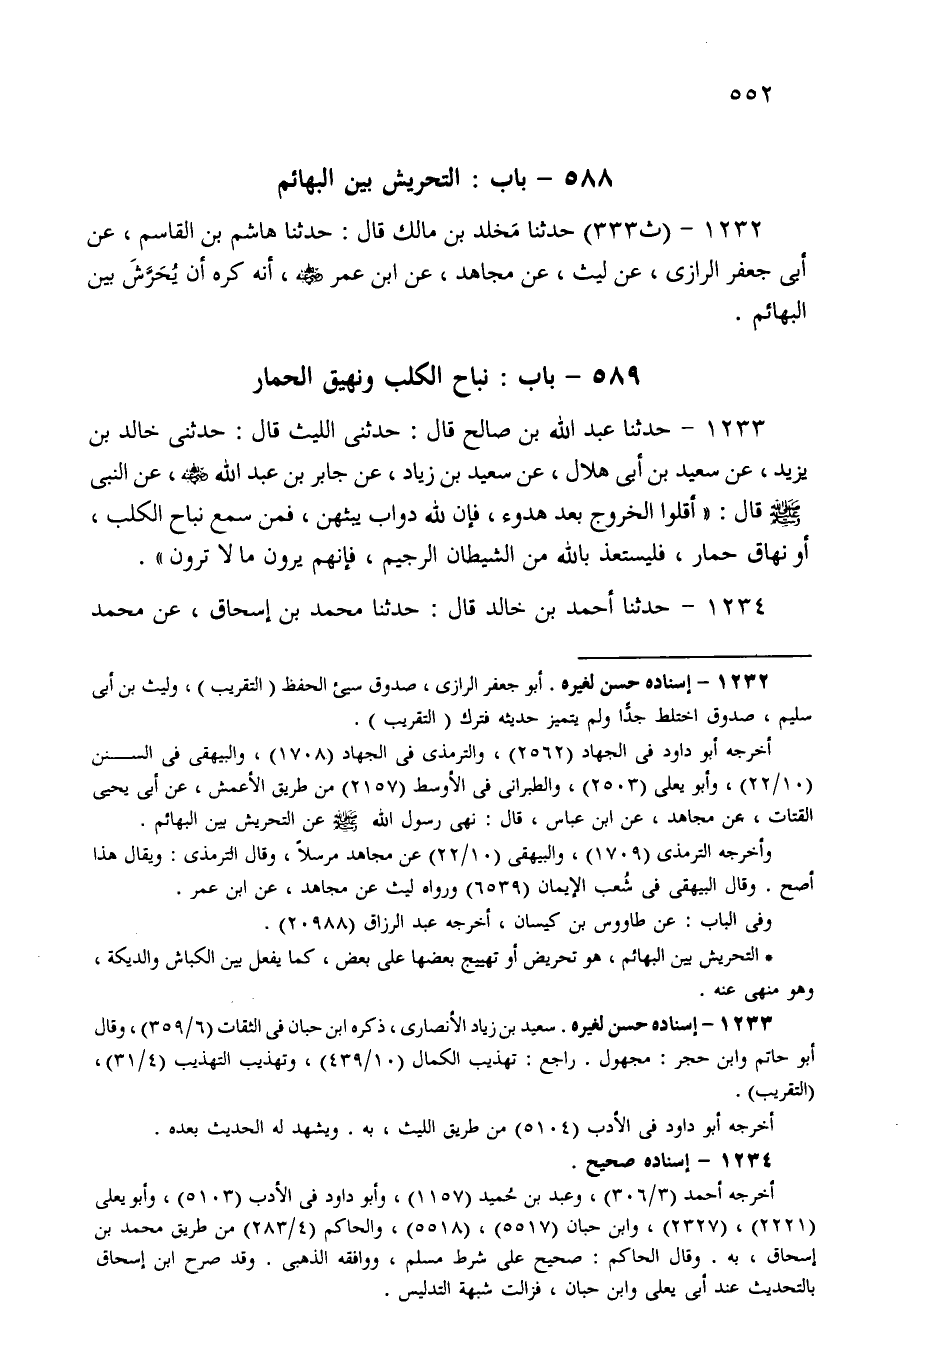 ٥٥٢
٥٨٨ – باب : التحريش بين البهائم
١٢٣٢ – (ث٣٣٣) حدثنا مَخلد بن مالك قال : حدثنا هاشم بن القاسم ، عن
أبى جعفر الرازى ، عن ليث ، عن مجاهد ، عن ابن عمر رضي الله عنه ، أنه كره أن يُحَرَّشَ بين
البهائم .
٥٨٩ – باب : نباح الكلب ونهيق الحمار
١٢٣٣ – حدثنا عبد الله بن صالح قال : حدثنى الليث قال : حدثنى خالد بن
يزيد ، عن سعيد بن أبى هلال ، عن سعيد بن زياد ، عن جابر بن عبد الله رضي الله عنه ، عن النبى
ﷺ قال : « أقلوا الخروج بعد هدوء ، فإن لله دواب يبثهن ، فمن سمع نباح الكلب ،
أو نهاق حمار ، فليستعذ بالله من الشيطان الرجيم ، فإنهم يرون ما لا ترون » .
١٢٣٤ – حدثنا أحمد بن خالد قال : حدثنا محمد بن إسحاق ، عن محمد
١٢٣٢ – إسناده حسن لغيره . أبو جعفر الرازى ، صدوق سيئ الحفظ ( التقريب ) ، وليث بن أبى
سليم ، صدوق اختلط جدًّا ولم يتميز حديثه فترك ( التقريب ) .
أخرجه أبو داود فى الجهاد (٢٥٦٢) ، والترمذى فى الجهاد (١٧٠٨) ، والبيهقى فى الســـنن
(٢٢/١٠) ، وأبو يعلى (٢٥٠٣) ، والطبرانى فى الأوسط (٢١٥٧) من طريق الأعمش ، عن أبى يحيى
القتات ، عن مجاهد ، عن ابن عباس ، قال : نهى رسول الله ﷺ عن التحريش بين البهائم .
وأخرجه الترمذى (١٧٠٩) ، والبيهقى (٢٢/١٠) عن مجاهد مرسلاً ، وقال الترمذى : ويقال هذا
أصح . وقال البيهقى فى شُعب الإيمان (٦٥٣٩) ورواه ليث عن مجاهد ، عن ابن عمر .
وفى الباب : عن طاووس بن كيسان ، أخرجه عبد الرزاق (٢٠٩٨٨) .
* التحريش بين البهائم ، هو تحريض أو تهييج بعضها على بعض ، كما يفعل بين الكباش والديكة ،
وهو منهى عنه .
١٢٣٣ – إسناده حسن لغيره . سعيد بن زياد الأنصارى ، ذكره ابن حبان فى الثقات (٣٥٩/٦) ، وقال
أبو حاتم وابن حجر : مجهول . راجع : تهذيب الكمال (٤٣٩/١٠) ، وتهذيب التهذيب (٣١/٤) ،
(التقريب) .
أخرجه أبو داود فى الأدب (٥١٠٤) من طريق الليث ، به . ويشهد له الحديث بعده .
١٢٣٤ – إسناده صحيح .
أخرجه أحمد (٣٠٦/٣) ، وعبد بن حُميد (١١٥٧) ، وأبو داود فى الأدب (٥١٠٣) ، وأبو يعلى
(٢٢٢١) ، (٢٣٢٧) ، وابن حبان (٥٥١٧) ، (٥٥١٨) ، والحاكم (٢٨٣/٤) من طريق محمد بن
إسحاق ، به . وقال الحاكم : صحيح على شرط مسلم ، ووافقه الذهبى . وقد صرح ابن إسحاق
بالتحديث عند أبى يعلى وابن حبان ، فزالت شبهة التدليس .